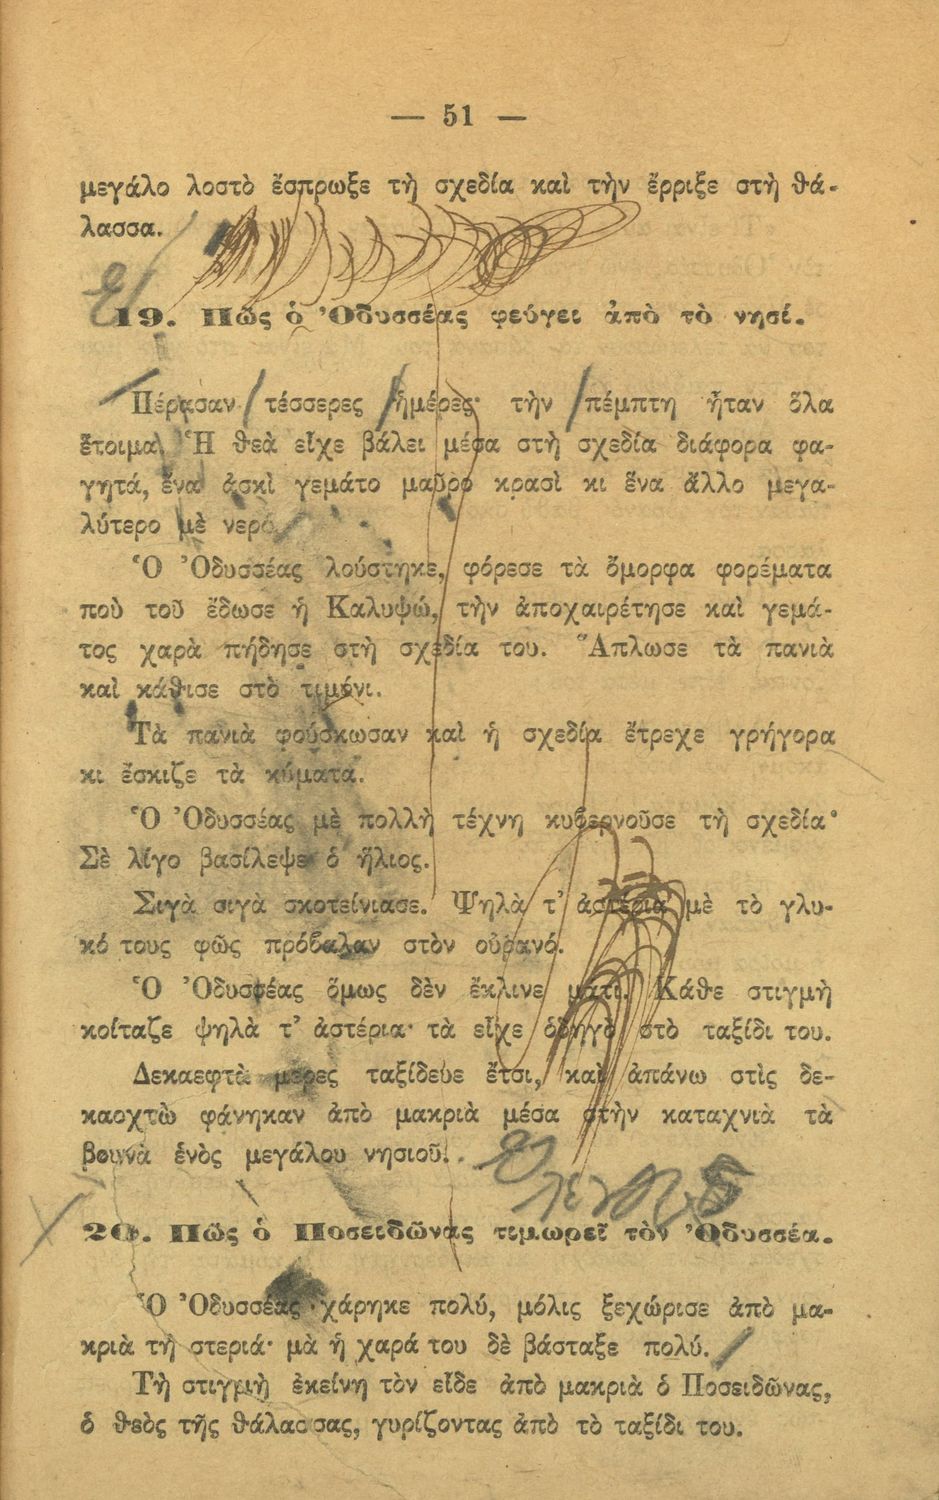 — 51 —
μεγάλο λοστὸ ἔσπρωξε τὴ σχεδία καὶ τὴν ἔρριξε στὴ θά-
λασσα.
19. Πῶς ὁ Ὀδυσσέας φεύγει ἀπὸ τὸ νησί.
Πέρασαν τέσσερες ἡμέρες· τὴν πέμπτη ἦταν ὅλα
ἕτοιμα. Ἡ θεὰ εἶχε βάλει μέσα στὴ σχεδία διάφορα φα-
γητά, ἕνα ἀσκὶ γεμάτο μαῦρο κρασὶ κι ἕνα ἄλλο μεγα-
λύτερο μὲ νερό.
Ὁ Ὀδυσσέας λούστηκε, φόρεσε τὰ ὄμορφα φορέματα
ποὺ τοῦ ἔδωσε ἡ Καλυψώ, τὴν ἀποχαιρέτησε καὶ γεμά-
τος χαρὰ πήδησε στὴ σχεδία του. Ἅπλωσε τὰ πανιὰ
καὶ κάθισε στὸ τιμόνι.
Τὰ πανιὰ φούσκωσαν καὶ ἡ σχεδία ἔτρεχε γρήγορα
κι ἔσκιζε τὰ κύματα.
Ὁ Ὀδυσσέας μὲ πολλὴ τέχνη κυβερνοῦσε τὴ σχεδία·
Σὲ λίγο βασίλεψε ὁ ἥλιος.
Σιγὰ σιγὰ σκοτείνιασε. Ψηλὰ τ' ἀστέρια μὲ τὸ γλυ-
κό τους φῶς πρόβαλαν στὸν οὐρανό.
Ὁ Ὀδυσσέας ὅμως δὲν ἔκλινε μάτι. Κάθε στιγμὴ
κοίταζε ψηλὰ τ' ἀστέρια· τὰ εἶχε ὁδηγὸ στὸ ταξίδι του.
Δεκαεφτὰ μέρες ταξίδευε ἔτσι, καὶ ἀπάνω στὶς δε-
καοχτὼ φάνηκαν ἀπὸ μακριὰ μέσα στὴν καταχνιὰ τὰ
βουνὰ ἑνὸς μεγάλου νησιοῦ.
20. Πῶς ὁ Ποσειδῶνας τιμωρεῖ τὸν Ὀδυσσέα.
Ὁ Ὀδυσσέας χάρηκε πολύ, μόλις ξεχώρισε ἀπὸ μα-
κριὰ τὴ στεριά· μὰ ἡ χαρά του δὲ βάσταξε πολύ.
Τὴ στιγμὴ ἐκείνη τὸν εἶδε ἀπὸ μακριὰ ὁ Ποσειδῶνας,
ὁ θεὸς τῆς θάλασσας, γυρίζοντας ἀπὸ τὸ ταξίδι του.